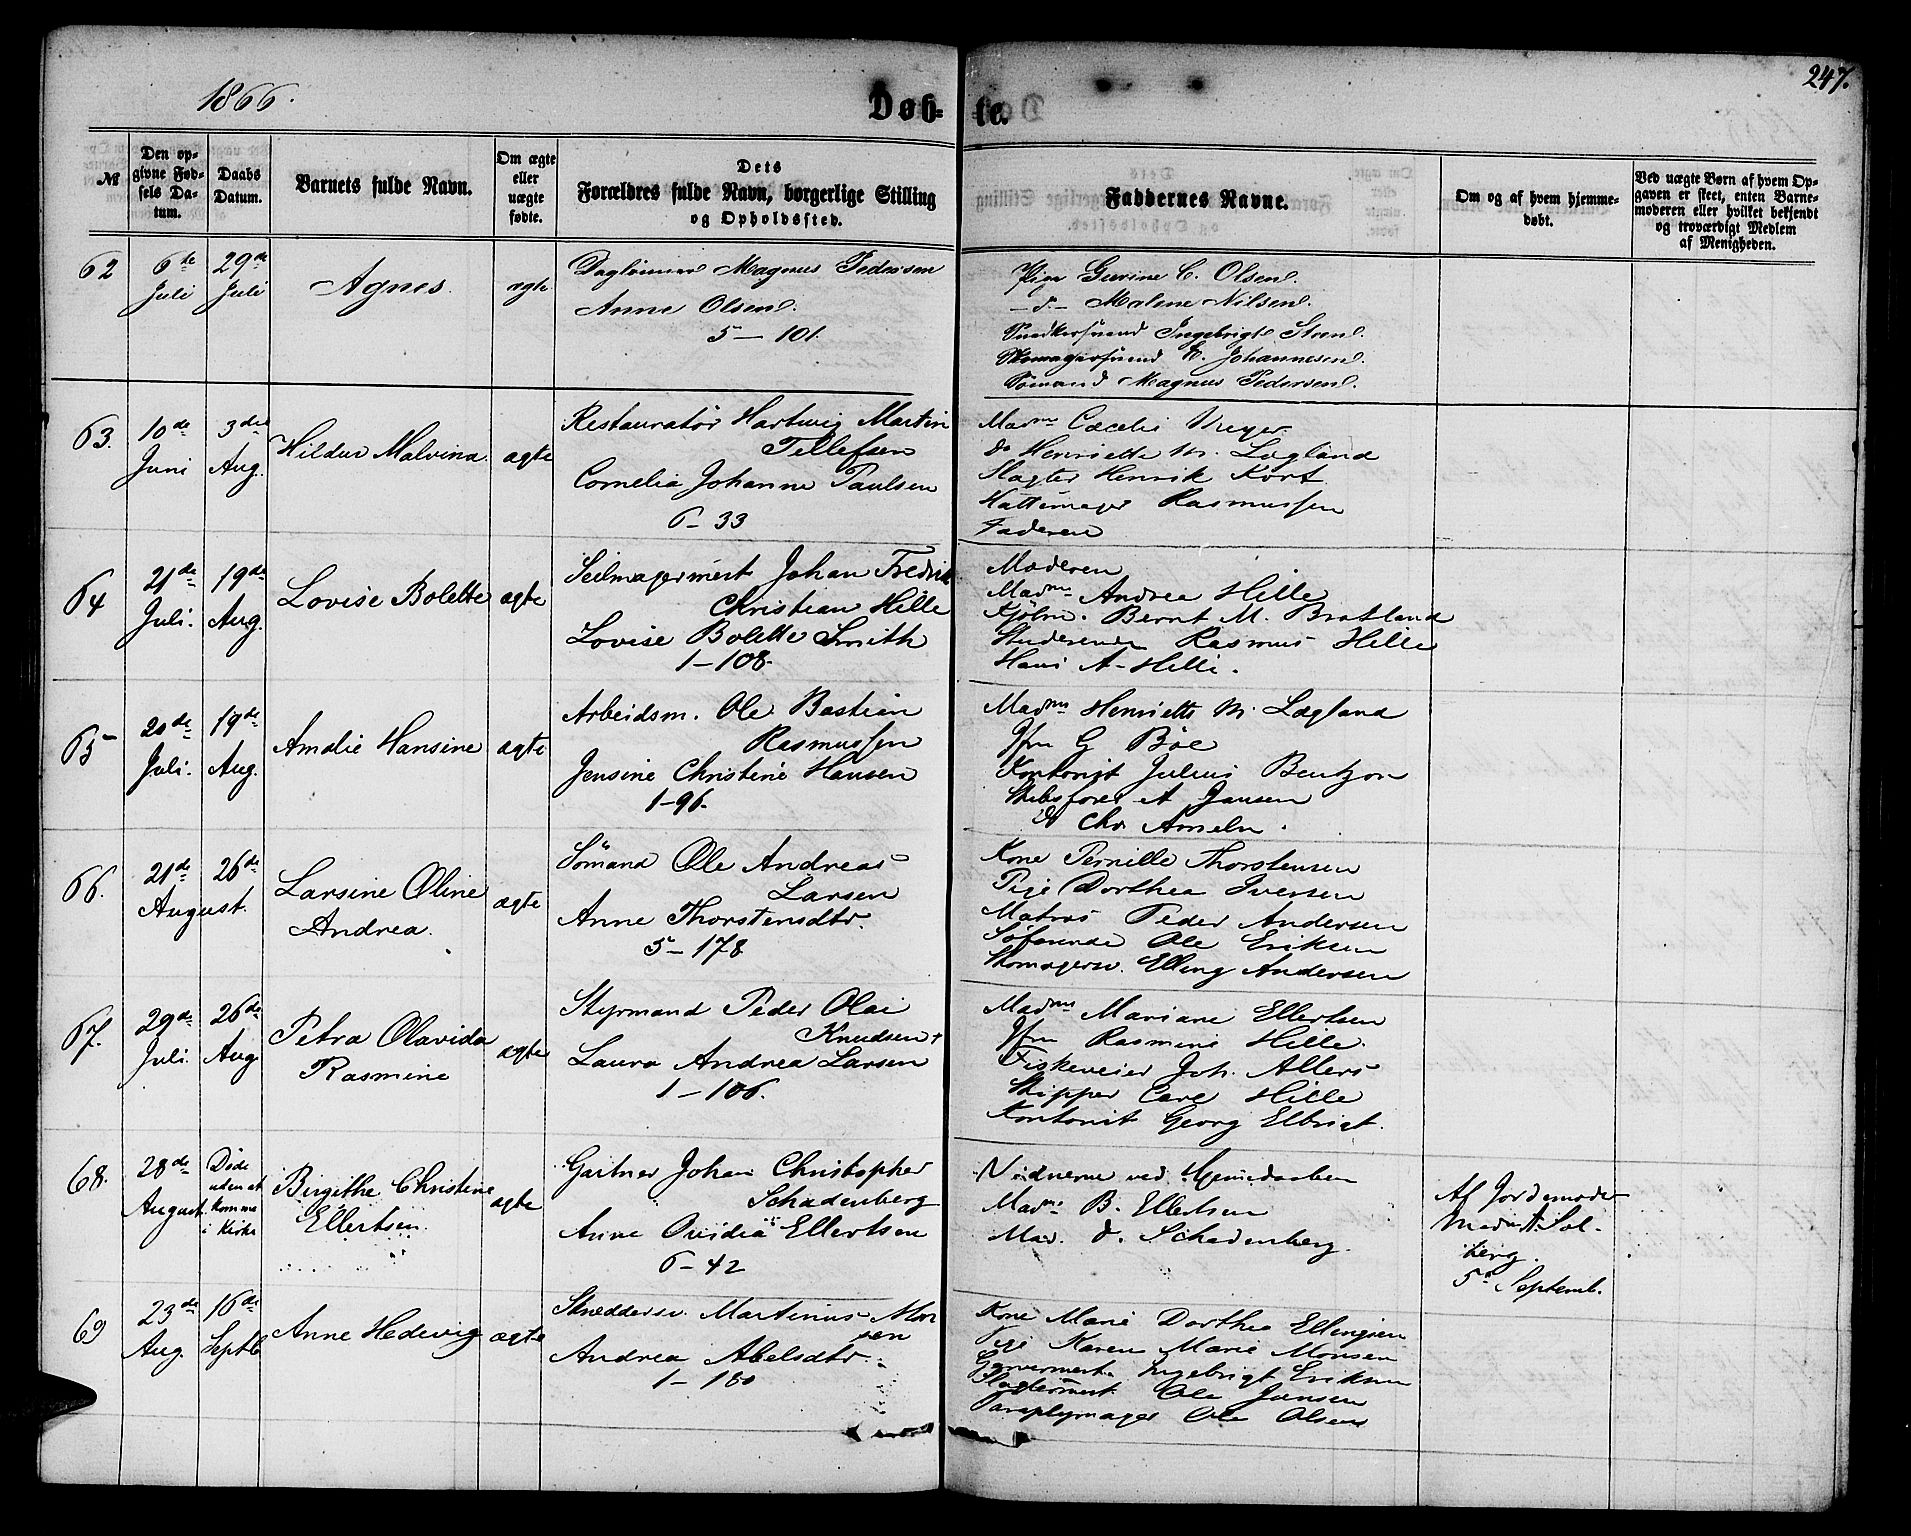 1866.
Døb-
te.
247.
№
Den op-
givne Fød-
sels Da-
tum.
Daabs
Datum.
Barnets fulde Navn.
Om ægte
eller
uægte
fødte.
Dets
Forældres fulde Navn, borgerlige Stilling
og Opholdssted.
Faddernes Navne.
Om og af hvem hjemme-
døbt.
Ved uægte Børn af hvem Op-
gaven er skeet, enten Barne-
moderen eller hvilket bekjendt
og troværdigt Medlem
af Menigheden.
62
6te
Juli
29de
Juli
Agnes.
ægte
Daglønner Magnus Pedersen
Anne Olsen.
5 – 101.
Pige Gurine C. Olsen.
– d – Malene Nilsen.
Snedkersvend Ingebrigt Steen.
Skomagersvend E. Johannesen.
Sømand Magnus Pedersen.
63.
10de
Juni
3die
Aug.
Hildur Malvina.
ægte
Restauratør Hartwig Martin
Tellefsen
Cornelia Johanne Paulsen
6 – 33
Madme Cæcelie Meyer
do Henriette M. Lægland
Slagter Henrik Kort
Hattemager Rasmussen
Faderen
64
21de
Juli.
19de
Aug.
Lovise Bolette
ægte
Seilmagermest Johan Fredrik
Christian Hille
Lovise Bolette Smith
1 – 108.
Moderen
Madme Andrea Hille
Kjøbm. Bernt M. Bratland
Studerende Rasmus Hille
Hans A. Hille.
65
20de
Juli.
19de
Aug.
Amalie Hansine
ægte
Arbeidsm. Ole Bastian
Rasmussen
Jensine Christine Hansen
1 – 96.
Madme Henriette M. Lægland
Jfru G Böe
Kontorist Julius Bentzon
Skibsfører A Jansen
Chr. Ameln.
66.
21de
August.
26de
Larsine Oline
Andrea.
ægte
Sömand Ole Andreas
Larsen
Anne Thorstensdtr.
5 – 178
Kone Pernille Thorstensen
Pige Dorthea Iversen
Matros Peder Andersen
Søfarende Ole Eriksen
Skomagersv. Elling Andersen
67.
29de
Juli.
26de
Aug
Petra Olavida
Rasmine
ægte
Styrmand Peder Olai
Knudsen +
Laura Andrea Larsen
1 – 106.
Madme Mariane Ellertsen
Jfru Rasmine Hille.
Fiskeveier Joh. Allers
Skipper Carl Hille
Kontorist Georg Elbrigt.
68.
28de
August.
Døde
uden at
komme
i Kirke
Birgithe Christine
Ellertsen.
ægte
Gartner Johan Christopher
Schadenberg
Anne Ovidia Ellertsen
6 – 42
Vidnerne ved Hjemmedaaben
Madme B. Ellertsen
Mad. d. Schadenberg.
Af Jordemoder
Madm Sol-
berg.
5te Septemb.
69
23de
Aug.
16de
Septb
Anne Hedevig
ægte
Skreddersv. Martinus Mon
sen
Andrea Abelsdtr.
1 – 180
Kone Marie Dorthea Ellingsen
Pige Karen Marie Monsen
Garvermest. Ingebrigt Eriksen
Slagtermest. Ole Jansen
Paraplymager Ole Olsen